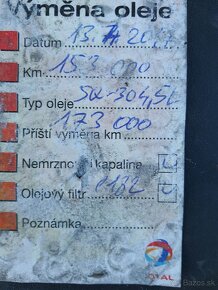 Výměna oleje
Datum 13.4.20
Km 153 000
Typ oleje
173 000
Příští výměna km
Nemrznoucí kapalina
Olejový filtr
Poznámka
TOTAL